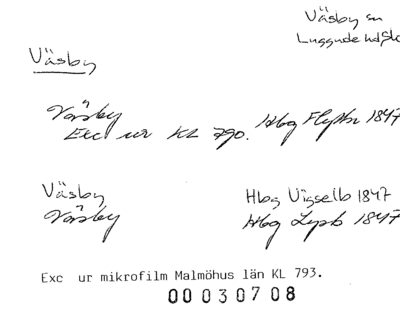 Väsby sn
Luggude hd Sk
Väsby
Väsby
Exc ur KL 790. Hbg Flyttn 1847
Väsby Hbg Vigselb 1847
Väsby Hbg Lysb 1847
Exc ur mikrofilm Malmöhus län KL 793.
00030708